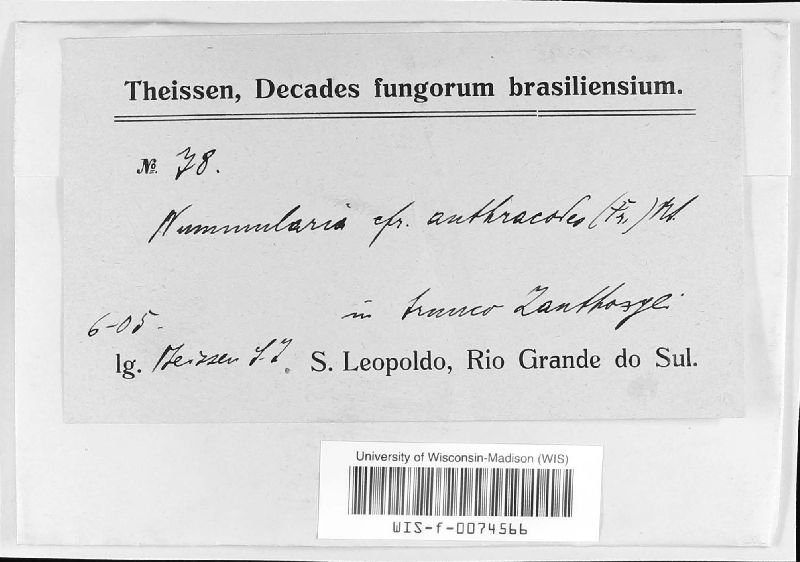 Theissen, Decades fungorum brasiliensium.
№ 78.
Nummularia cfr. anthracodes (Fr.)
in trunco Zanthoxyli
6-05.
lg. Theissen S.J. S. Leopoldo, Rio Grande do Sul.
University of Wisconsin-Madison (WIS)
WIS-f-0074566